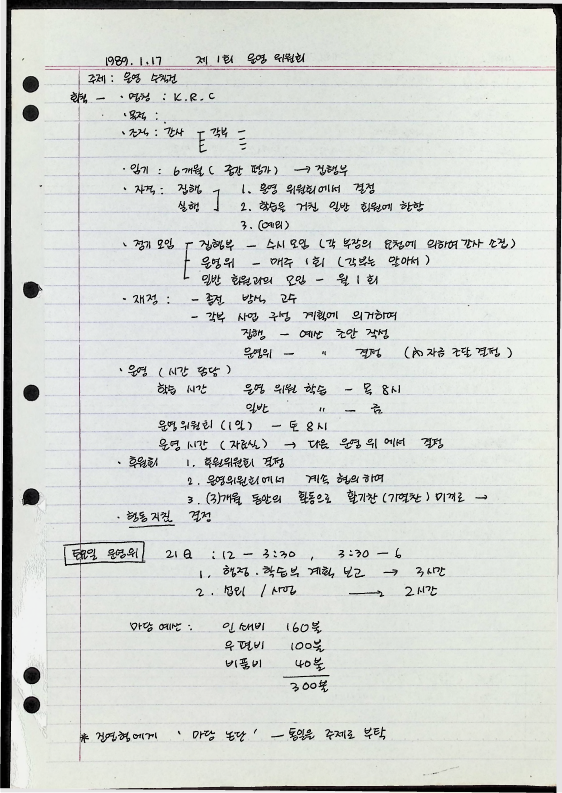 1989. 1. 17 제 1회 운영 위원회
주제 : 운영
회칙 — · 명칭 : K. R. C
· 목적 :
· 조직 : 간사 각부
· 임기 : 6개월 ( 중간 평가 ) → 집행부
· 자격 : 집행 1. 운영 위원회에서 결정
실행 2. 학습을 거친 일반 회원에 한함
3. (예외)
· 정기 모임 집행부 — 수시모임 (각 부장의 요청에 의하여 간사 소집)
운영위 — 매주 1회 (각부는 알아서)
일반 회원과의 모임 — 월 1회
· 재정 : — 종전 방식 고수
— 각부 사업 구성 계획에 의거하여
집행 — 예산 초안 작성
운영위 — " 결정 ( 자금 조달 결정 )
· 운영 ( 시간 담당 )
학습 시간 운영 위원 학습 — 목 8시
일반 " — 금
운영위원회 (1일) — 토 8시
운영 시간 ( 자료실 ) → 다음 운영위에서 결정
· 후원회 1. 후원위원회 결정
2. 운영위원회에서 계속 협의하여
3. (3)개월 동안의 활동으로 활기찬 (기열찬) 미끼로 →
· 행동지침 결정
토요일 운영위 21日 : 12 — 3:30 , 3:30 — 6
1. 행정 · 학습부 계획 보고 → 3시간
2. 섭외 / 사업 → 2시간
마당 예산 : 인쇄비 160불
우편비 100불
비품비 40불
300불
* 건연형에게 ' 마당 논단 ' — 통일을 주제로 부탁